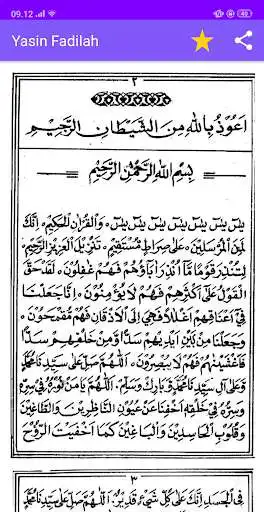 09.12
49
Yasin Fadilah
٢
اَعُوْذُ بِاللهِ مِنَ الشَّيْطَانِ الرَّجِيْمِ
بِسْمِ اللهِ الرَّحْمٰنِ الرَّحِيْمِ
يٰسٓ يٰسٓ يٰسٓ يٰسٓ يٰسٓ يٰسٓ يٰسٓ ۞ وَالْقُرْاٰنِ الْحَكِيْمِ ۞ اِنَّكَ
لَمِنَ الْمُرْسَلِيْنَ ۞ عَلٰى صِرَاطٍ مُسْتَقِيْمٍ ۞ تَنْزِيْلَ الْعَزِيْزِ الرَّحِيْمِ ۞
لِتُنْذِرَ قَوْمًا مَّا اُنْذِرَ اٰبَاؤُهُمْ فَهُمْ غٰفِلُوْنَ ۞ لَقَدْ حَقَّ
الْقَوْلُ عَلٰى اَكْثَرِهِمْ فَهُمْ لَا يُؤْمِنُوْنَ ۞ اِنَّا جَعَلْنَا
فِيْ اَعْنَاقِهِمْ اَغْلَالًا فَهِيَ اِلَى الْاَذْقَانِ فَهُمْ مُقْمَحُوْنَ ۞
وَجَعَلْنَا مِنْ بَيْنِ اَيْدِيْهِمْ سَدًّا وَّمِنْ خَلْفِهِمْ سَدًّا
فَاَغْشَيْنٰهُمْ فَهُمْ لَا يُبْصِرُوْنَ ۞ اَللّٰهُمَّ صَلِّ عَلٰى سَيِّدِنَا مُحَمَّدٍ
وَعَلٰى اٰلِ سَيِّدِنَا مُحَمَّدٍ وَبَارِكْ وَسَلِّمْ. اَللّٰهُمَّ يَا مَنْ نُوْرُهُ فِيْ سِرِّهِ
وَسِرُّهُ فِيْ خَلْقِهِ اَخْفِنَا عَنْ عُيُوْنِ النَّاظِرِيْنَ وَالطَّاغِيْنَ
وَقُلُوْبِ الْحَاسِدِيْنَ وَالْبَاغِيْنَ كَمَا اَخْفَيْتَ الرُّوْحَ
٣
فِي الْجَسَدِ اِنَّكَ عَلٰى كُلِّ شَيْءٍ قَدِيْرٌ. اَللّٰهُمَّ صَلِّ عَلٰى سَيِّدِنَا مُحَمَّدٍ